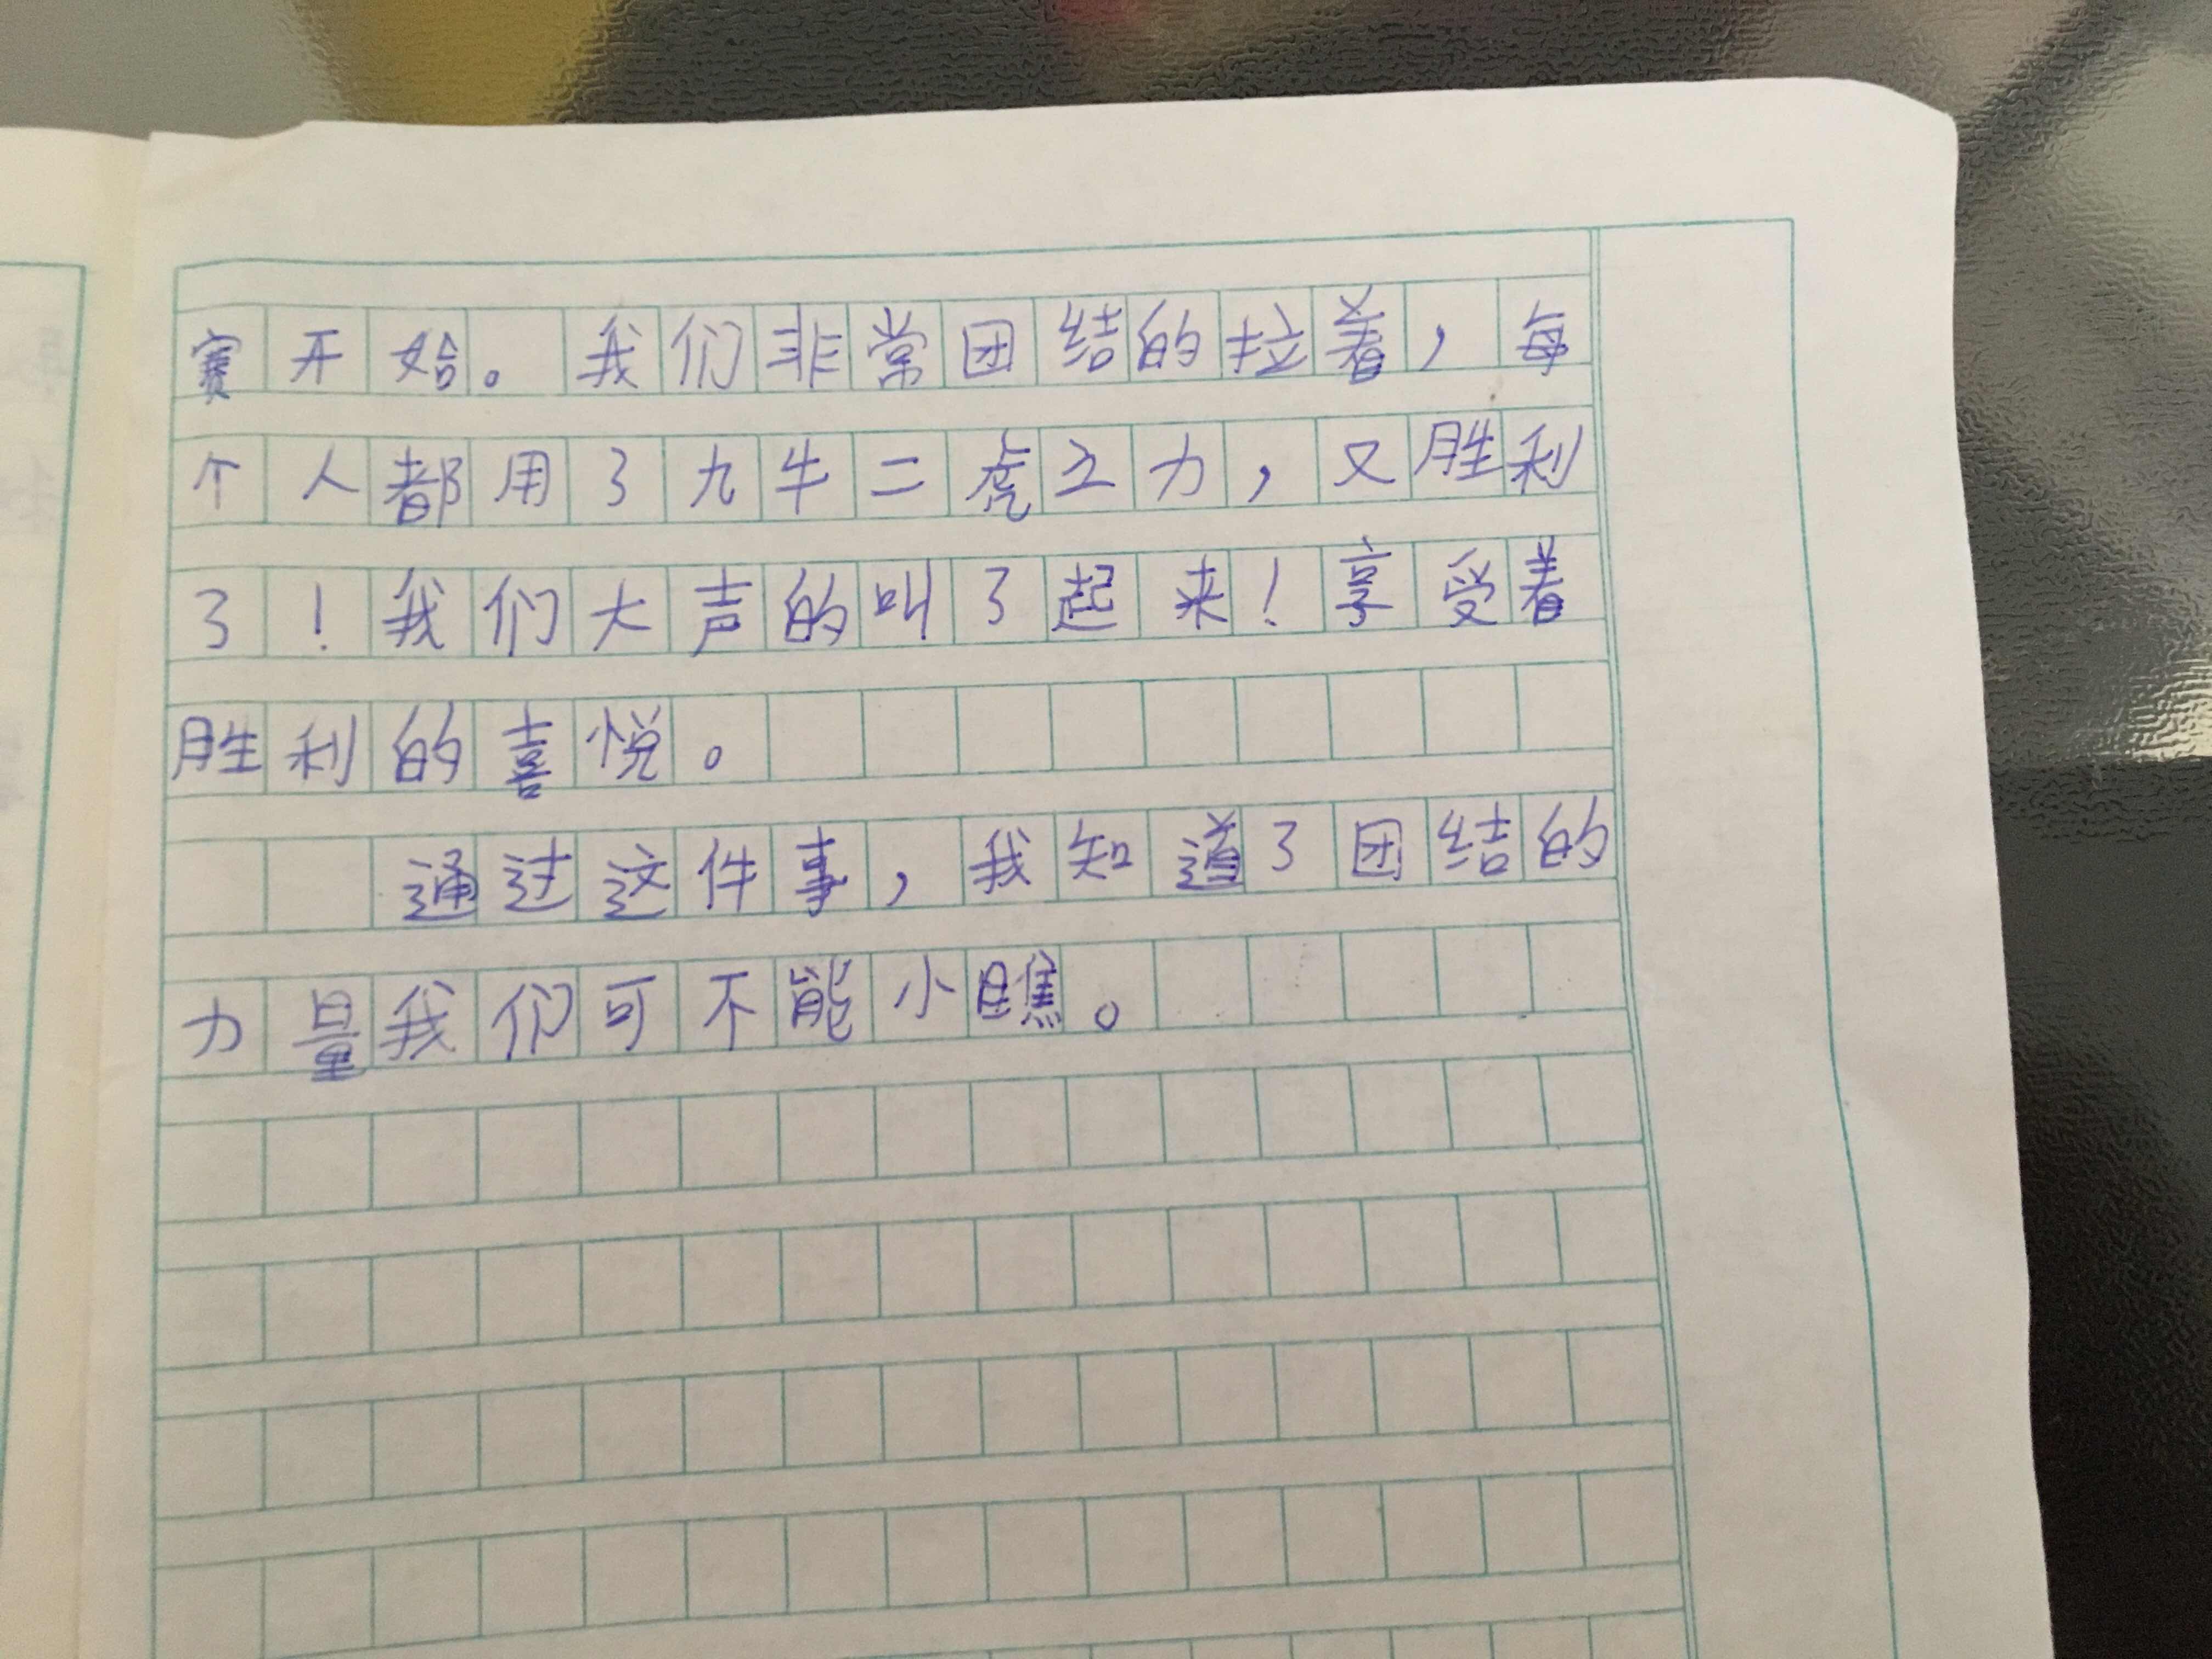 赛开始。我们非常团结的拉着，每
个人都用了九牛二虎之力，又胜利
了！我们大声的叫了起来！享受着
胜利的喜悦。
通过这件事，我知道了团结的
力量我们可不能小瞧。